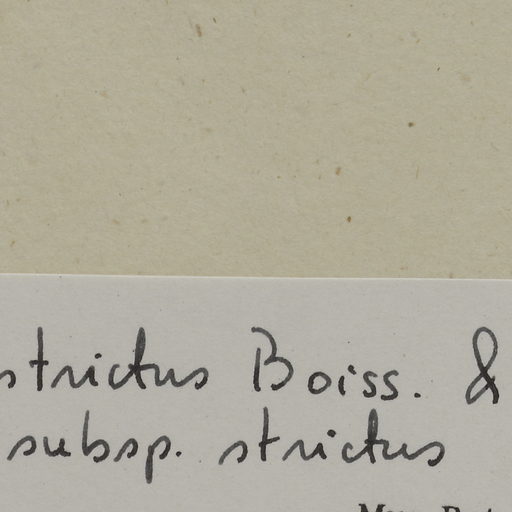 strictus Boiss. &
subsp. strictus